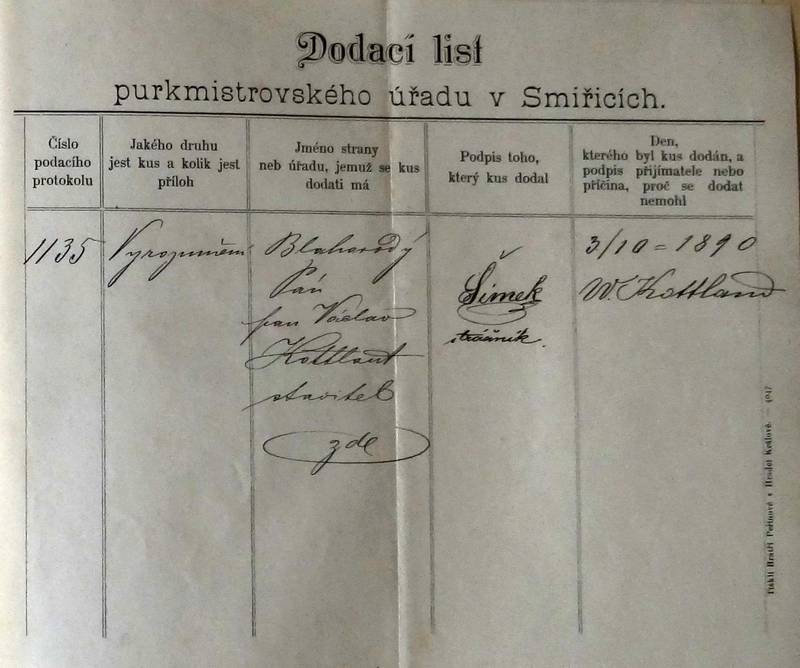 Dodací list
purkmistrovského úřadu v Smiřicích.
Číslo
podacího
protokolu
Jakého druhu
jest kus a kolik jest
příloh
Jméno strany
neb úřadu, jemuž se kus
dodati má
Podpis toho,
který kus dodal
Den,
kterého byl kus dodán, a
podpis přijímatele nebo
příčina, proč se dodat
nemohl
1135
Vyrozumění
Blahorodý
Pán
pan Václav
Kottlant
stavitel
zde
Šimek
strážník.
3/10 = 1890
W. Kottland
Tiskli Bratři Peřinové v Hradci Králové. —